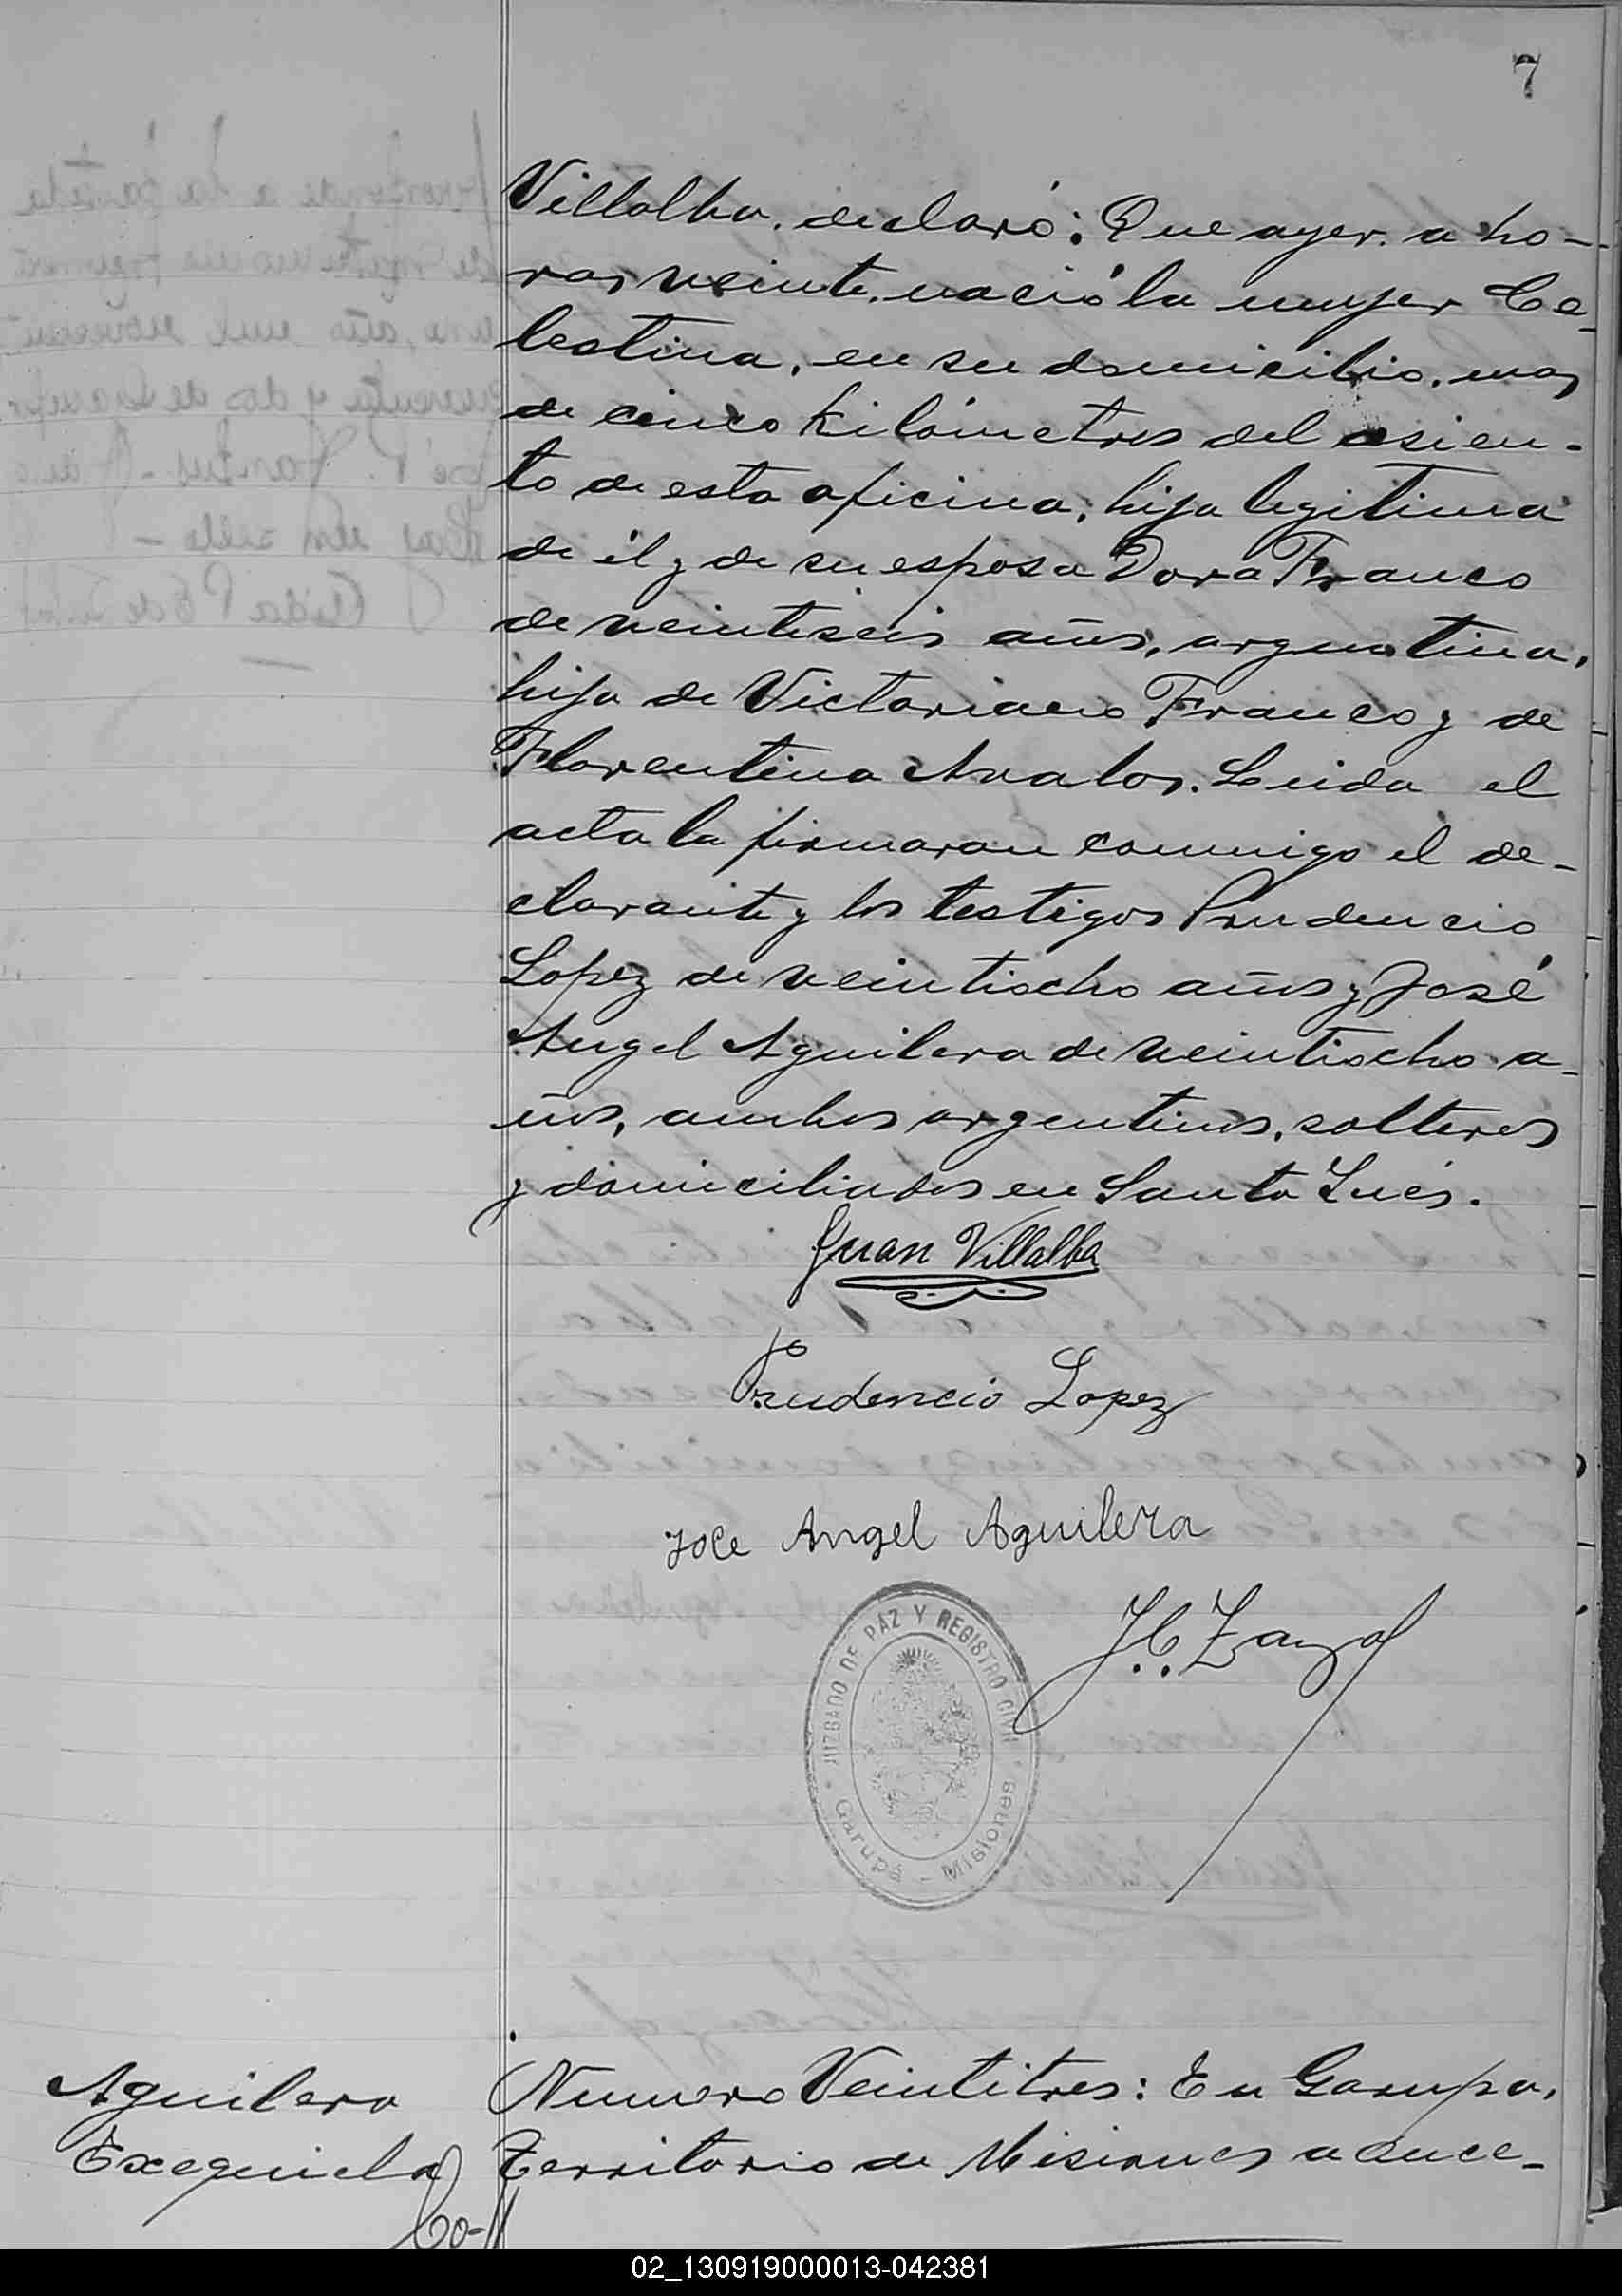 7
Villalba. declaró: Que ayer. a ho-
ras veinte. nació la mujer Ce-
lestina, en su domicilio. mas
de cinco kilómetros del asien-
to de esta oficina, hija legitima
de él y de su esposa Dora Franco
de veintiseis años, argentina,
hija de Victoriano Franco y de
Florentina Avalos. Leida el
acta la firmaran conmigo el de-
clarante y los testigos Prudencio
Lopez de veintiocho años y José
Angel Aguilera de veintiocho a-
ños, ambos argentinos, solteros
y domiciliados en Santa Inés.
Juan Villalba
Prudencio Lopez
Jose Angel Aguilera
JUZGADO DE PAZ Y REGISTRO CIVIL
Garupá - Misiones
Aguilera
Exequiela
Numero Veintitres: En Garupa,
Territorio de Misiones a once-
02_130919000013-042381